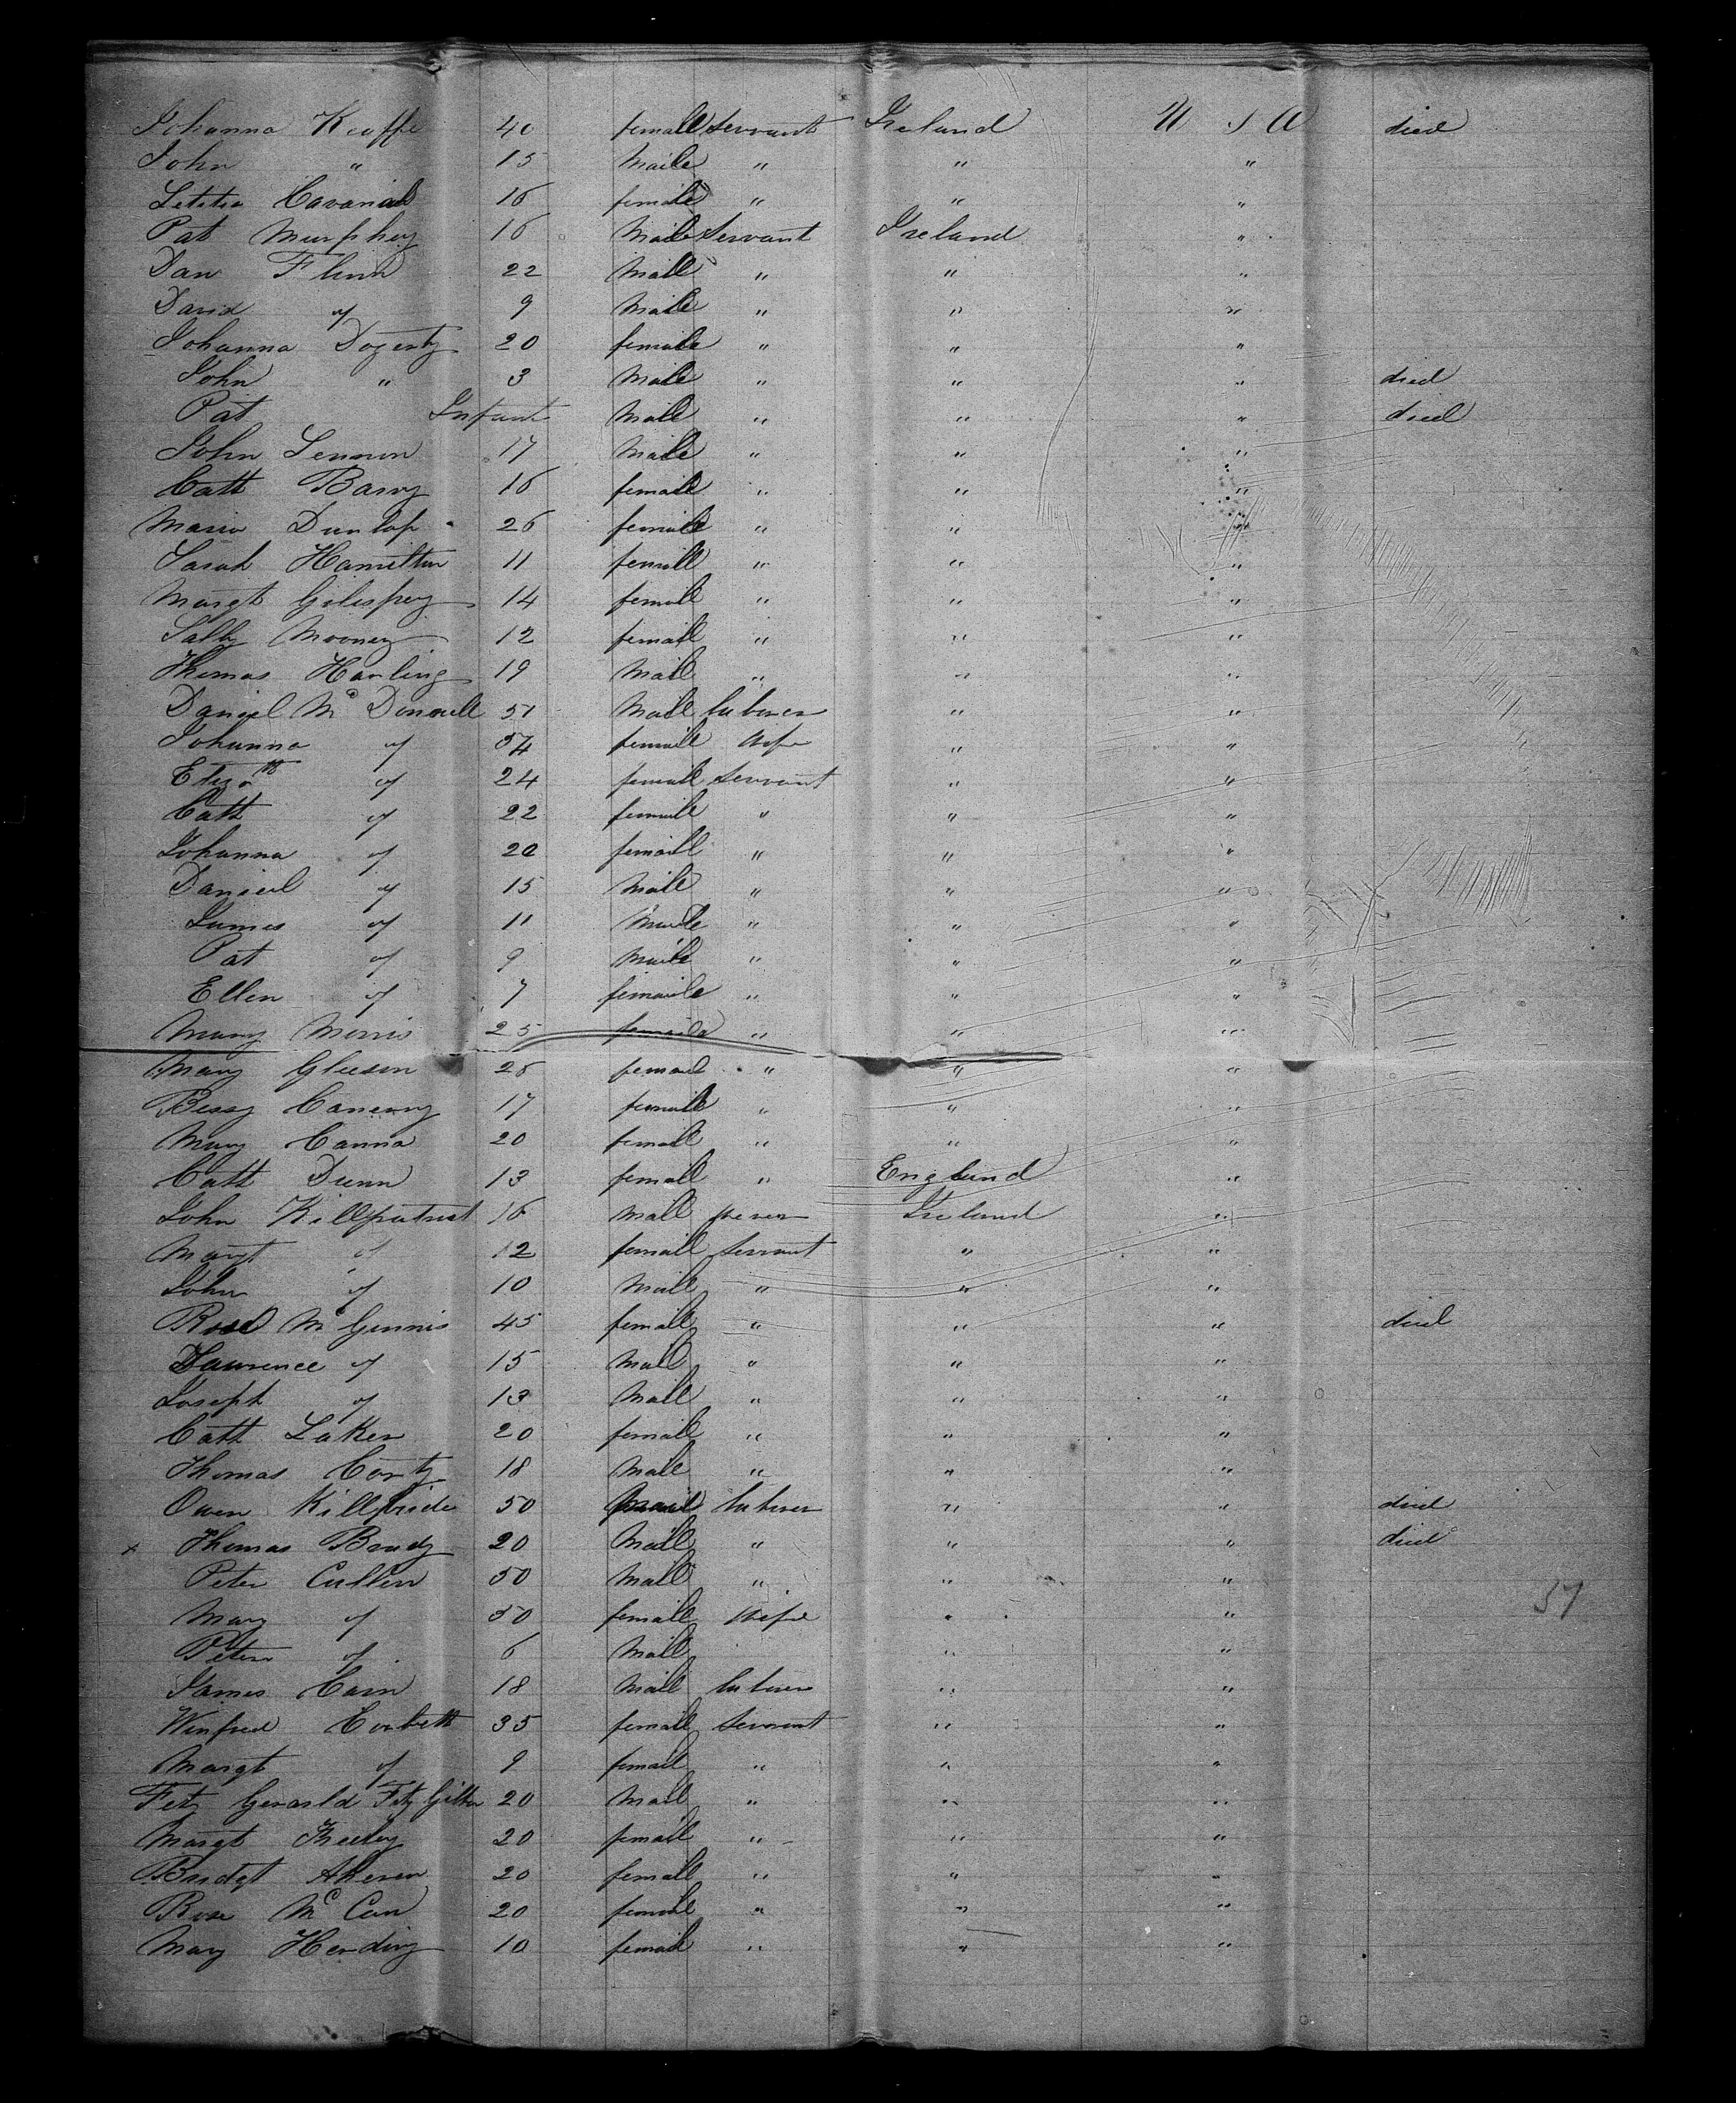 Johanna Keaffe 40 female Servant Ireland U S A died
John " 15 Maile " " "
Letitia Cavanah 16 female " " "
Pat Murphey 16 Male Servant Ireland "
Dan Flinn 22 Male " " "
David " 9 Male " " "
Johanna Dogerty 20 female " " "
John " 3 Male " " " died
Pat Infant Male " " " died
John Lennon 17 Male " " "
Cath Barry 16 female " " "
Maria Dunlap 26 female " " "
Sarah Hamilton 11 female " " "
Margt Gilespey 14 female " " "
Sally Mooney 12 female " " "
Thomas Harling 19 Mail " " "
Daniel Mc Donnell 51 Male laborer " "
Johanna " 54 female wife " "
Eliza th " 24 female Servant " "
Cath " 22 female " " "
Johanna " 20 female " " "
Daniel " 15 Male " " "
James " 11 Maile " " "
Pat " 9 Maile " " "
Ellen " 7 female " " "
Mary Morris 25 female " " "
Mary Gleeson 26 female " " "
Bessy Canerny 17 female " " "
Mary Canna 20 female " " "
Cath Dunn 13 female " England "
John Killpatrick 16 Male Ireland "
Margt " 12 female Servant " "
John " 10 Male " " "
Rose Mc Gennis 45 female " " " died
Lawrence " 15 Male " " "
Joseph " 13 Male " " "
Cath Laken 20 female " " "
Thomas Conty 18 Male " " "
Owen Killbride 50 Mail laborer " " died
x Thomas Brady 20 Mail " " " died
Peter Cullen 50 Male " " "
Mary " 50 female wife " "
Peter " 6 Male " "
James Carn 18 Male laborer " "
Winfred Corbett 35 female Servant " "
Margt " 9 female " " "
Fitz Gerarld Fitz 20 Male " " "
Margt 20 female " " "
Bridgt Aheren 20 female " " "
Rose Mc Can 20 female " " "
Mary Herding 10 female " " "
37